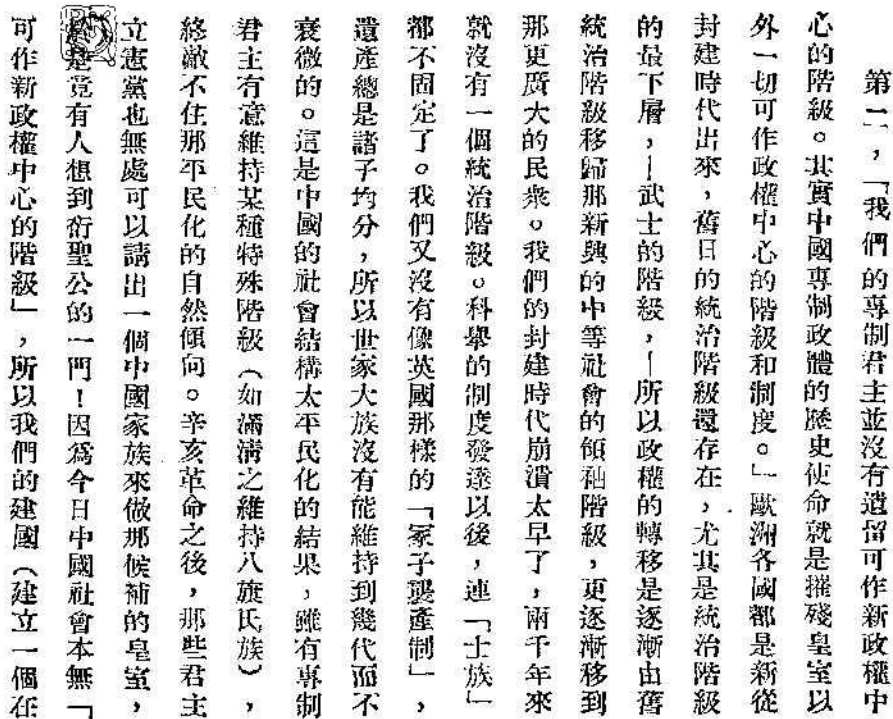 第二，「我們的專制君主並沒有遺留可作新政權中
心的階級。其實中國專制政體的歷史使命就是摧殘皇室以
外一切可作政權中心的階級和制度。」歐洲各國都是新從
封建時代出來，舊日的統治階級還存在，尤其是統治階級
的最下層，—武士的階級，—所以政權的轉移是逐漸由舊
統治階級移歸那新興的中等社會的領袖階級，更逐漸移到
那更廣大的民衆。我們的封建時代崩潰太早了，兩千年來
就沒有一個統治階級。科舉的制度發達以後，連「士族」
都不固定了。我們又沒有像英國那樣的「冢子襲產制」，
遺產總是諸子均分，所以世家大族沒有能維持到幾代而不
衰微的。這是中國的社會結構太平民化的結果，雖有專制
君主有意維持某種特殊階級（如滿清之維持八旗氏族），
終敵不住那平民化的自然傾向。辛亥革命之後，那些君主
立憲黨也無處可以請出一個中國家族來做那候補的皇室，
是竟有人想到衍聖公的一門！因爲今日中國社會本無「
可作新政權中心的階級」，所以我們的建國（建立一個在